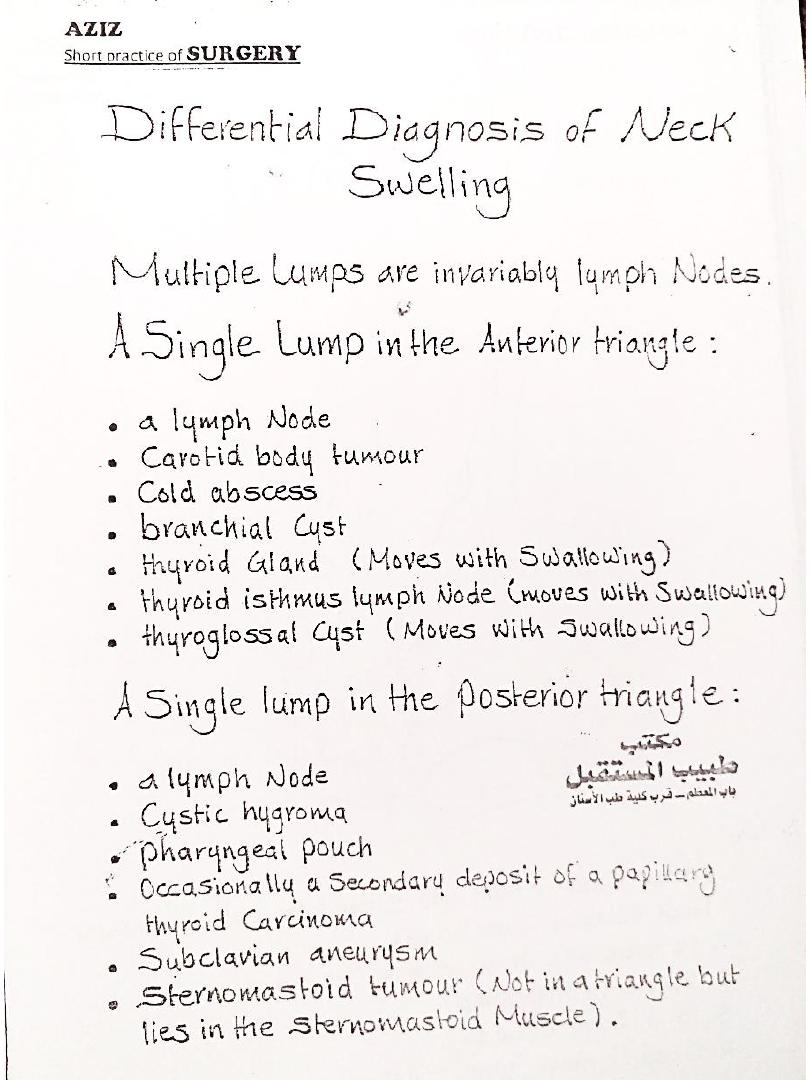 AZIZ
Short practice of SURGERY
Differential Diagnosis of Neck
Swelling
Multiple Lumps are invariably lymph Nodes.
A Single Lump in the Anterior triangle :
• a lymph Node
• Carotid body tumour
• Cold abscess
• branchial Cyst
• thyroid Gland (Moves with Swallowing)
• thyroid isthmus lymph Node (moves with Swallowing)
• thyroglossal Cyst (Moves with Swallowing)
A Single lump in the posterior triangle :
مكتب
طبيب المستقبل
باب المعظم - قرب كلية طب الأسنان
• a lymph Node
• Cystic hygroma
• pharyngeal pouch
• Occasionally a Secondary deposit of a papillary
thyroid Carcinoma
• Subclavian aneurysm
• Sternomastoid tumour (Not in a triangle but
lies in the Sternomastoid Muscle).